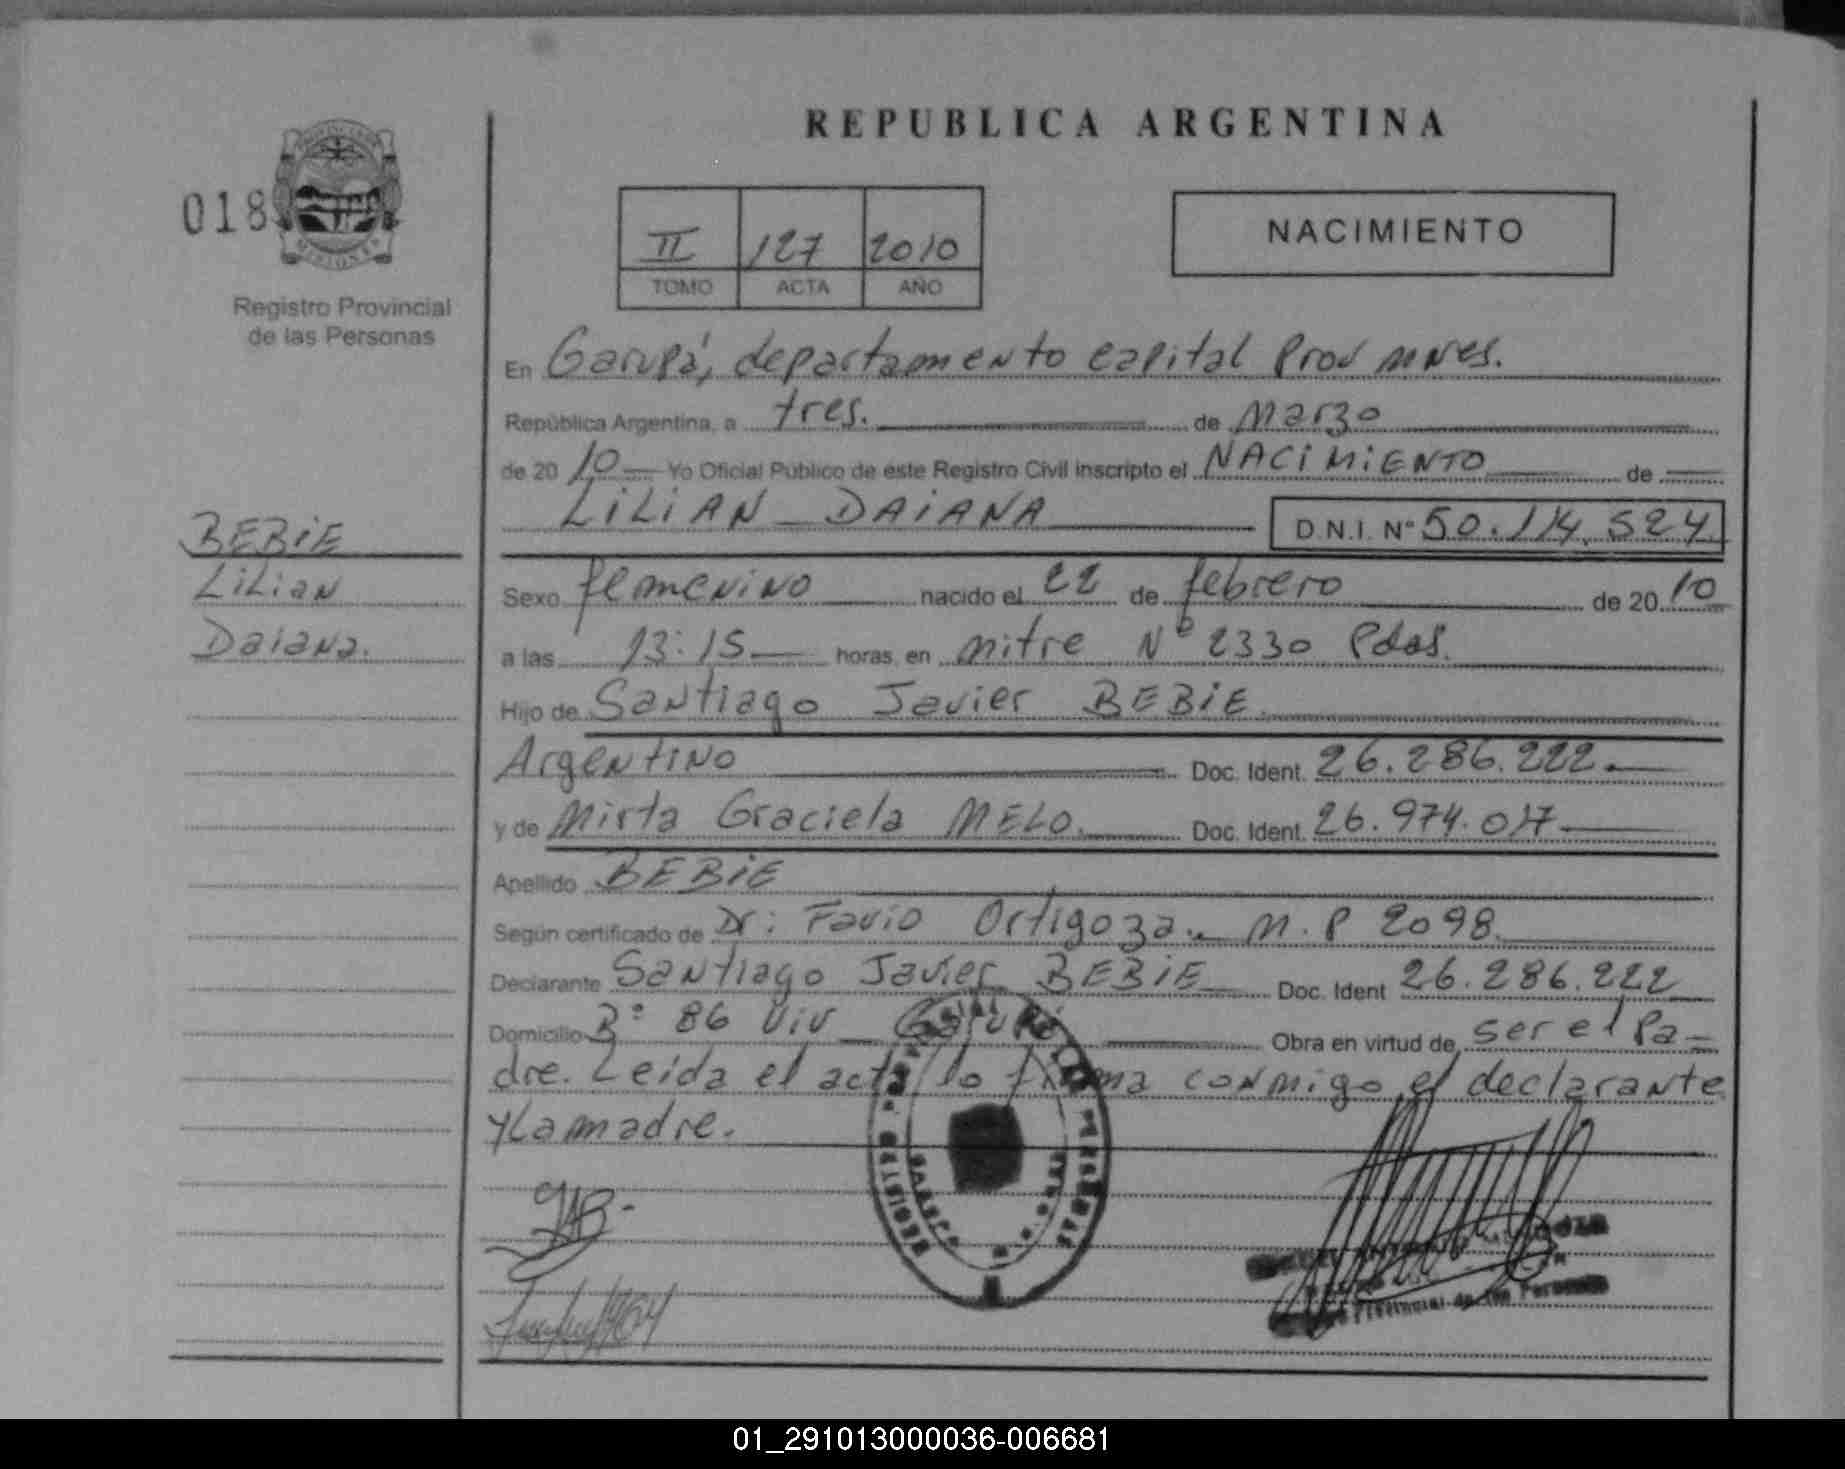 REPUBLICA ARGENTINA
018
PROVINCIA
MISIONES
Registro Provincial
de las Personas
II 127 2010
TOMO ACTA AÑO
NACIMIENTO
En Garupá, departamento capital Prov mnes.
República Argentina, a tres. de Marzo
de 20 10 Yo Oficial Público de este Registro Civil inscripto el NACIMIENTO de
LILIAN DAIANA D.N.I. N° 50.114.524
BEBIE
Lilian
Daiana.
Sexo femenino nacido el 22 de febrero de 20 10
a las 13:15 horas, en mitre N° 2330 Pdas.
Hijo de Santiago Javier BEBIE
Argentino Doc. Ident. 26.286.222.
y de Mirta Graciela MELO. Doc. Ident. 26.974.017
Apellido BEBIE
Según certificado de Dr: Favio Ortigoza. M.P 2098.
Declarante Santiago Javier BEBIE Doc. Ident 26.286.222
Domicilio B° 86 Viv Garupá Obra en virtud de ser el Pa-
dre. Leida el acta lo firma conmigo el declarante
y la madre.
REGISTRO PERSONAS
GARUPA
Provincial de las Personas
01_291013000036-006681